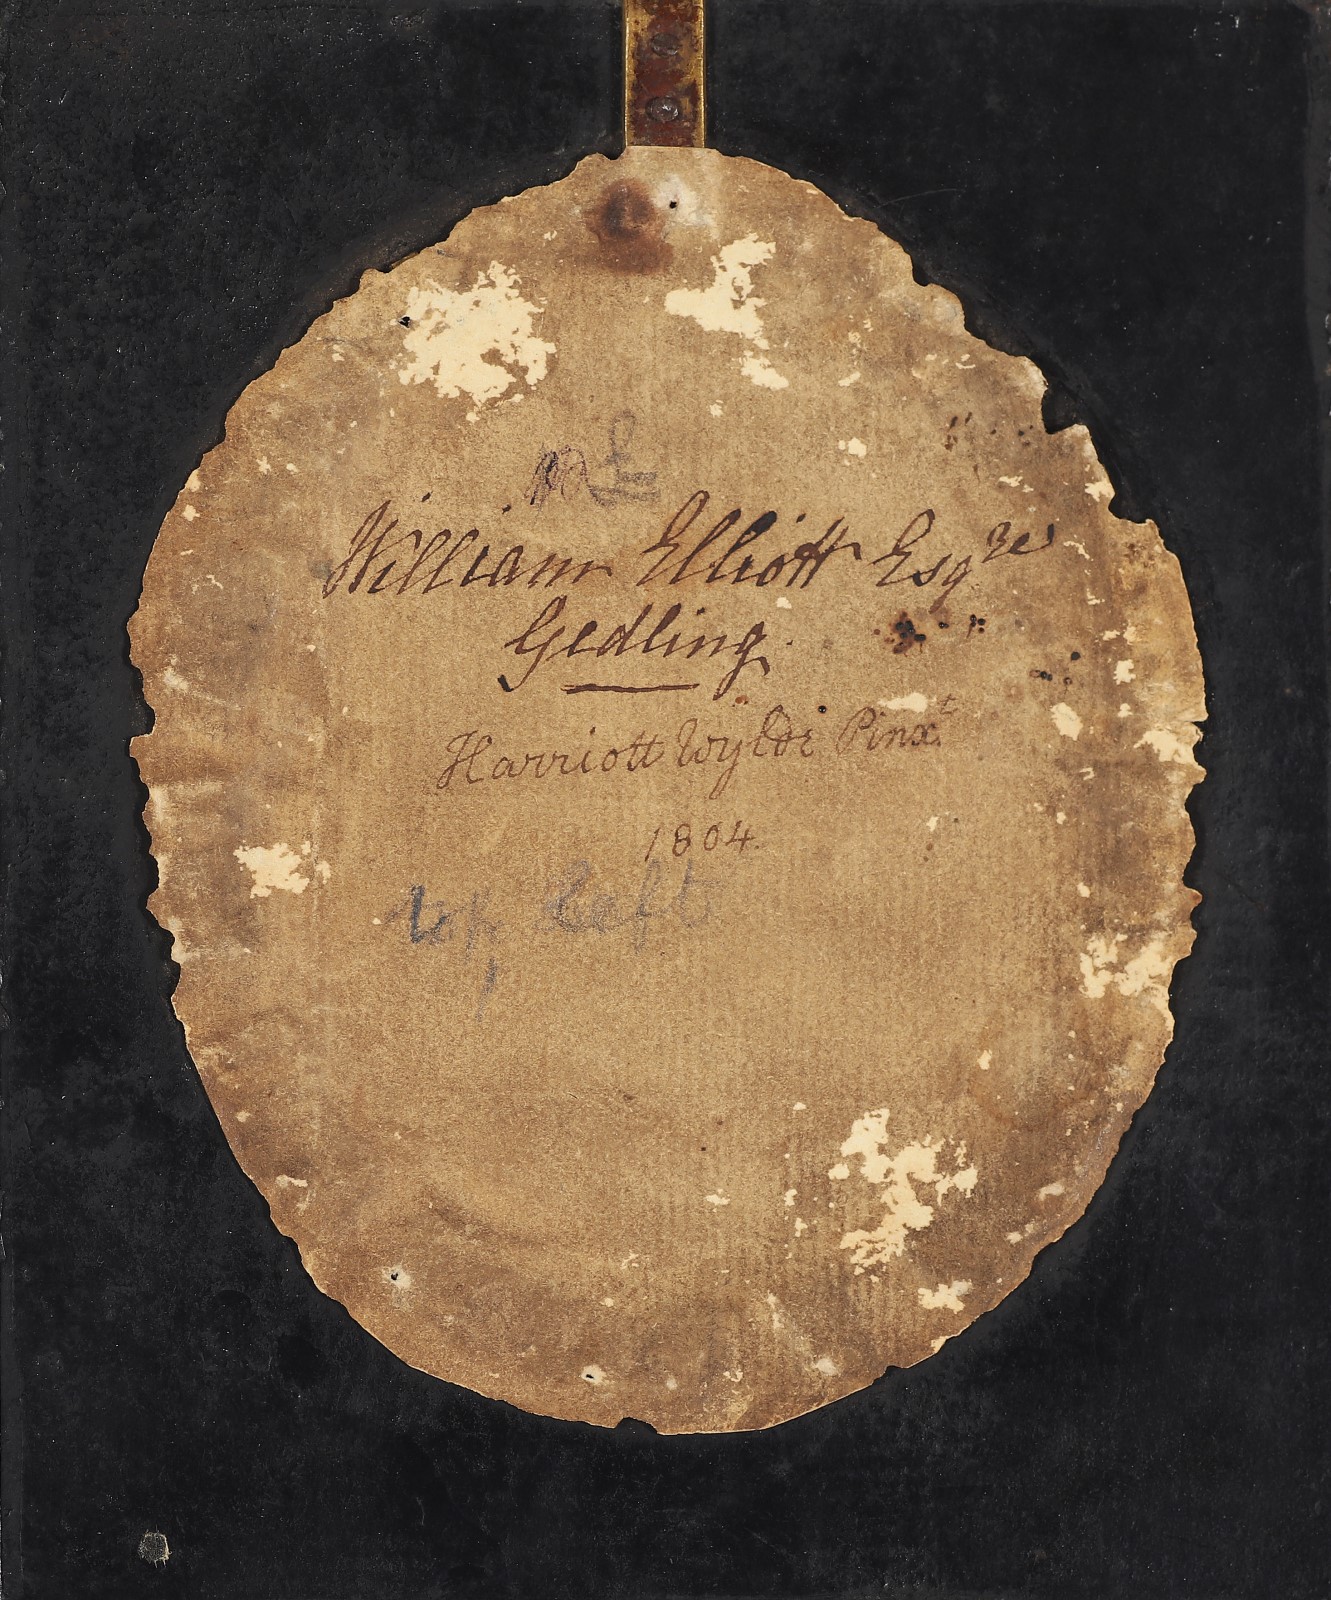 William Elliott Esqre
Gedling.
Harriott Wylde Pinxt
1804.
top left